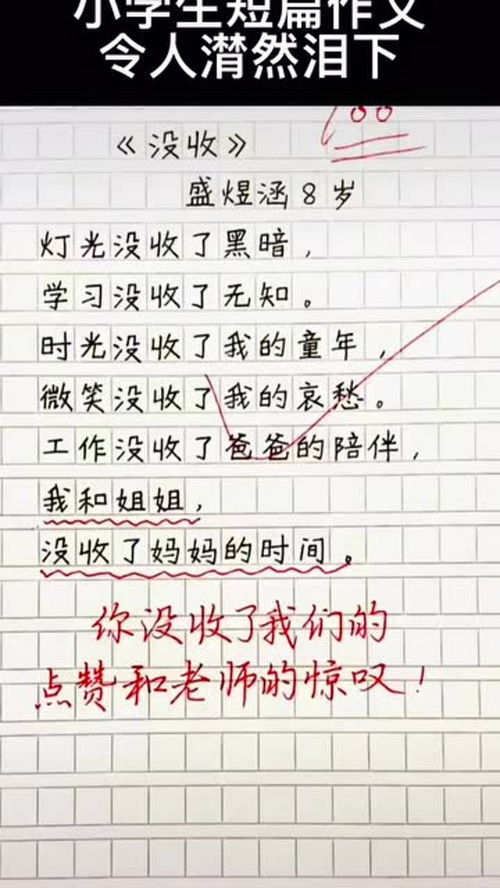 小学生短篇作文
令人潸然泪下
100
《没收》
盛煜涵8岁
灯光没收了黑暗，
学习没收了无知。
时光没收了我的童年，
微笑没收了我的哀愁。
工作没收了爸爸的陪伴，
我和姐姐，
没收了妈妈的时间。
你没收了我们的
点赞和老师的惊叹！